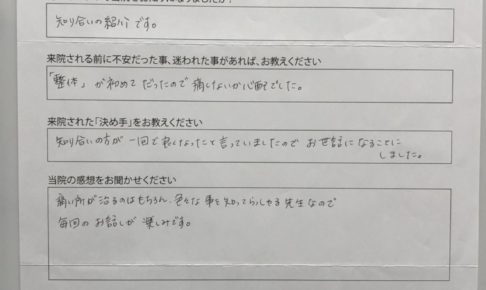 知り合いの紹介です。
来院される前に不安だった事、迷われた事があれば、お教えください
「整体」が初めてだったので痛くないか心配でした。
来院された「決め手」をお教えください
知り合いの方が一回で良くなったと言っていましたので お世話になることに
しました。
当院の感想をお聞かせください
痛い所が治るのはもちろん、色々な事を知ってらっしゃる先生なので
毎回のお話しが楽しみです。